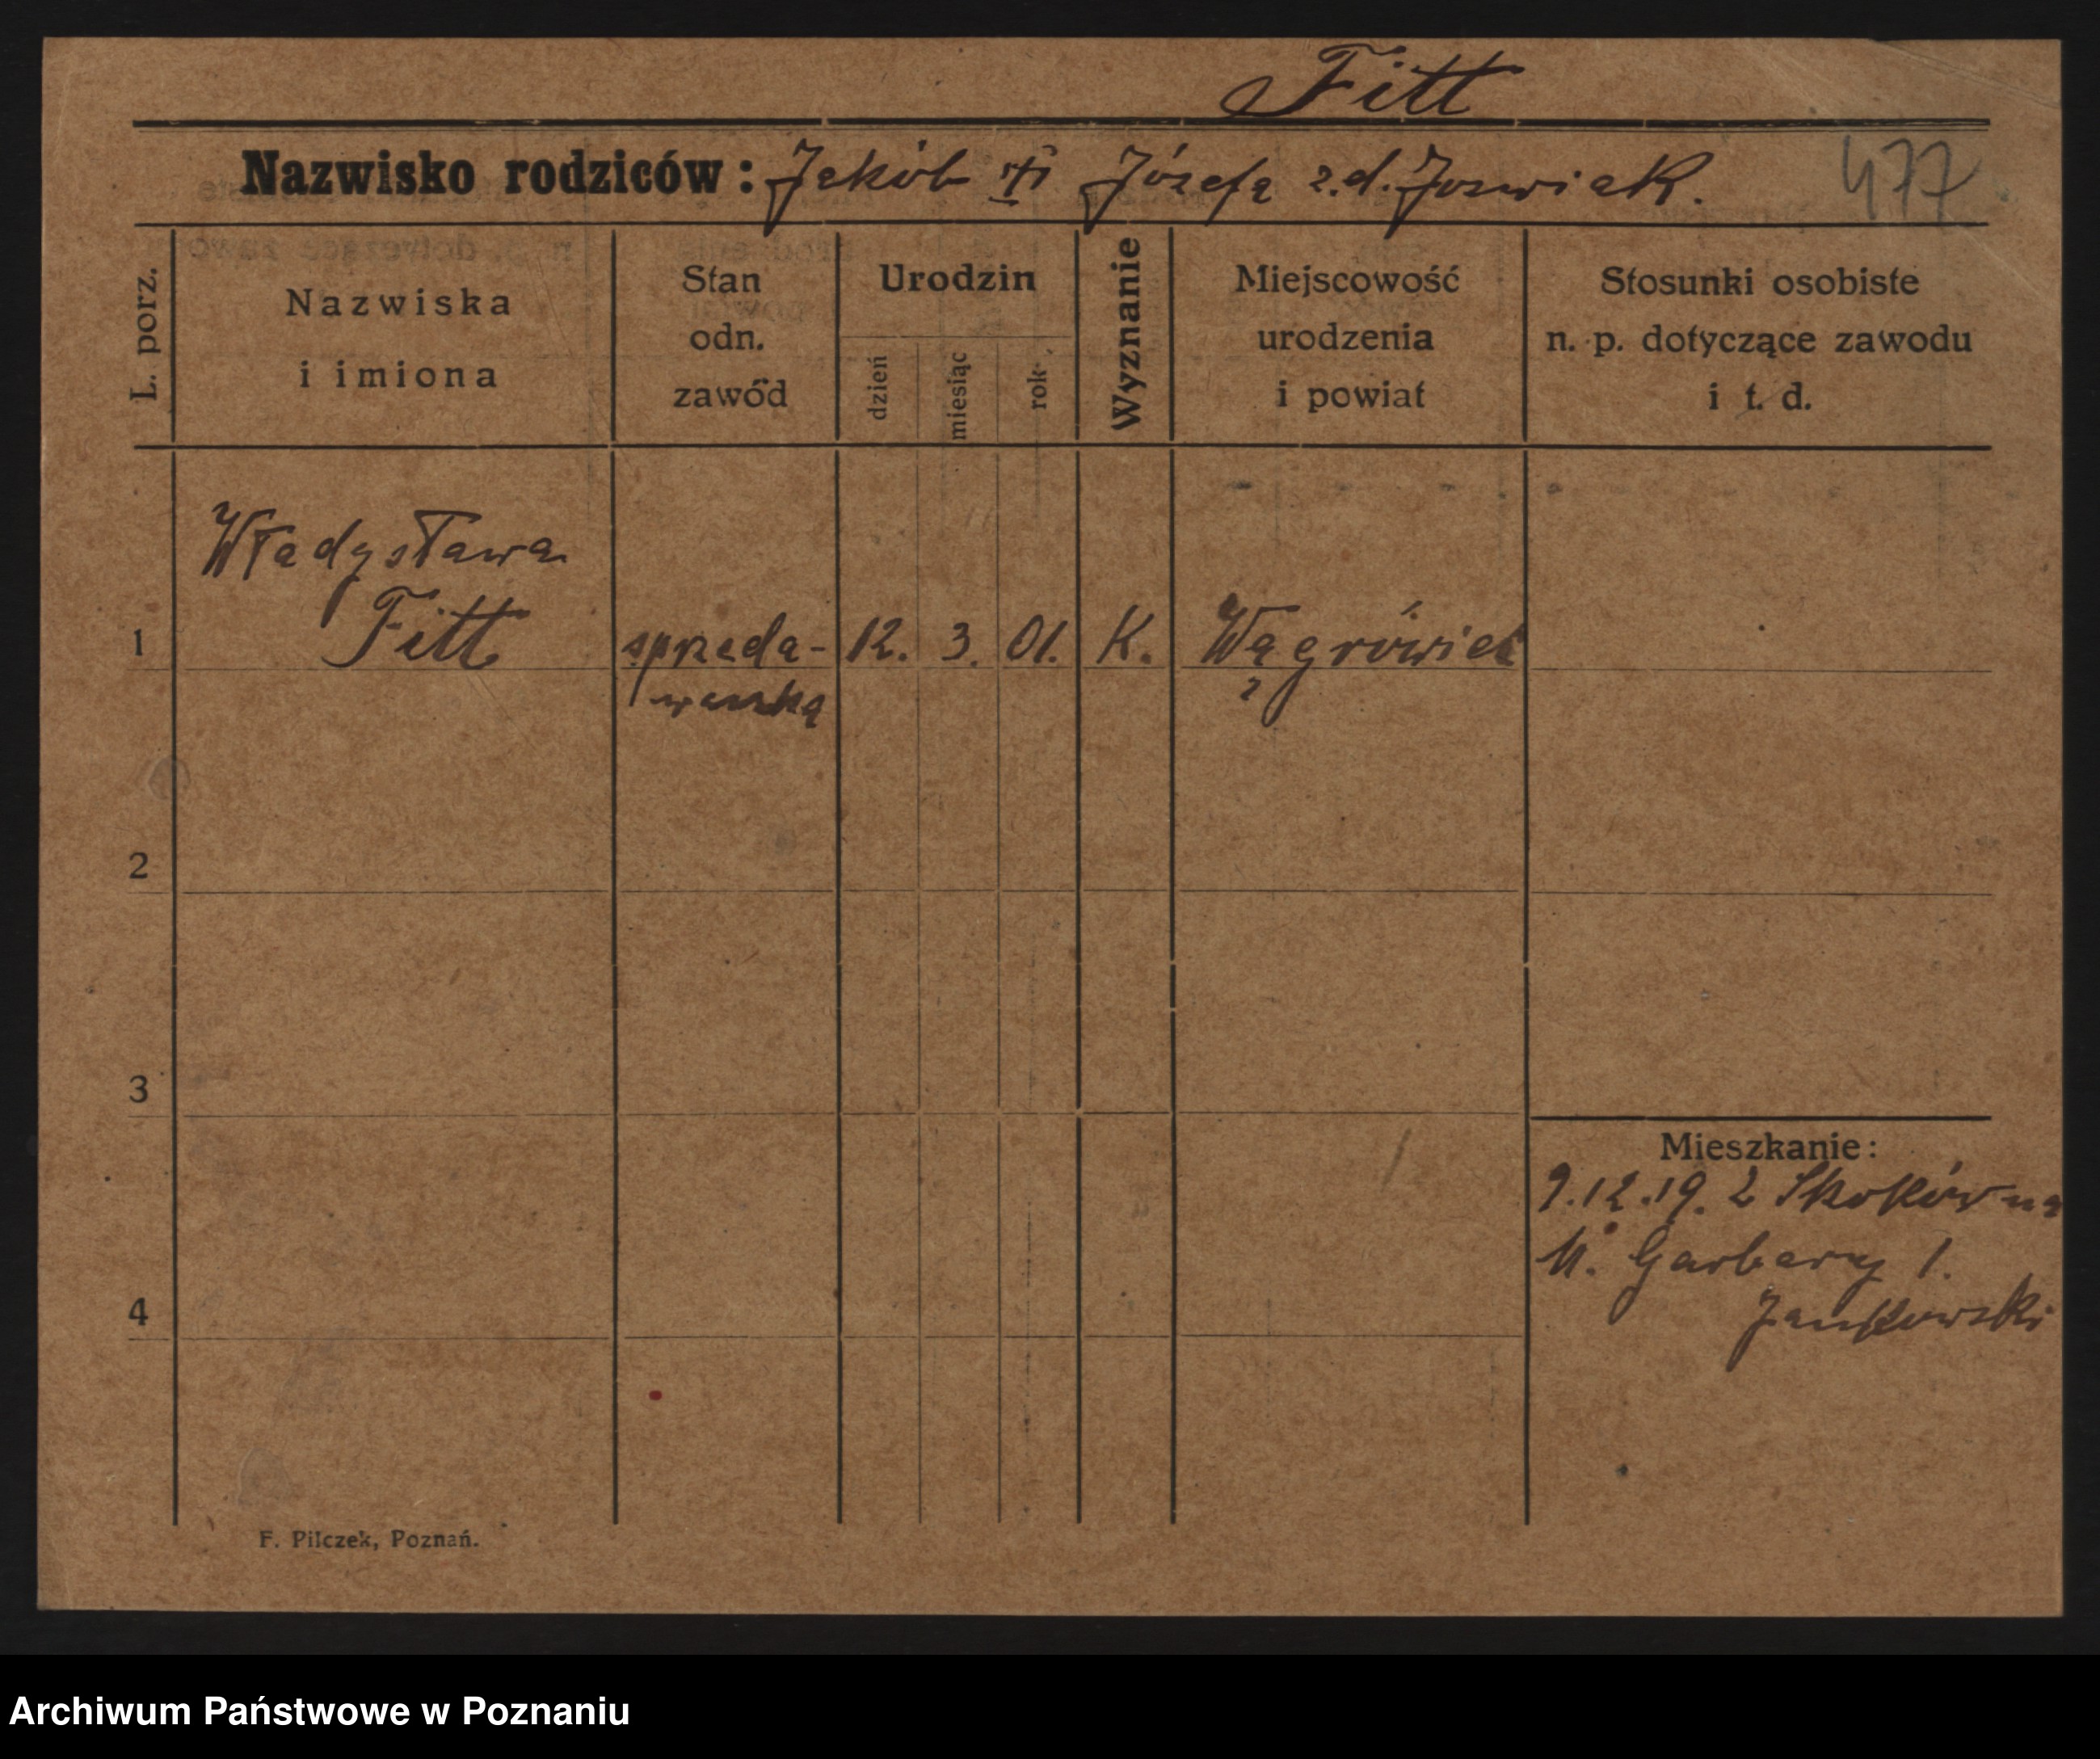 Fitt
Nazwisko rodziców: Jakób i Józefa z.d. Jozwiak.
477
L. porz.
Nazwiska
i imiona
Stan
odn.
zawód
Urodzin
dzień
miesiąc
rok
Wyznanie
Miejscowość
urodzenia
i powiat
Stosunki osobiste
n. p. dotyczące zawodu
i t. d.
Władysława
1 Fitt sprzeda- 12. 3. 01. K. Wągrówiec
waczka
2
3
4
Mieszkanie:
9.12.19. z Skoków na
M. Garbary 1.
Jankowski
F. Pilczek, Poznań.
Archiwum Państwowe w Poznaniu